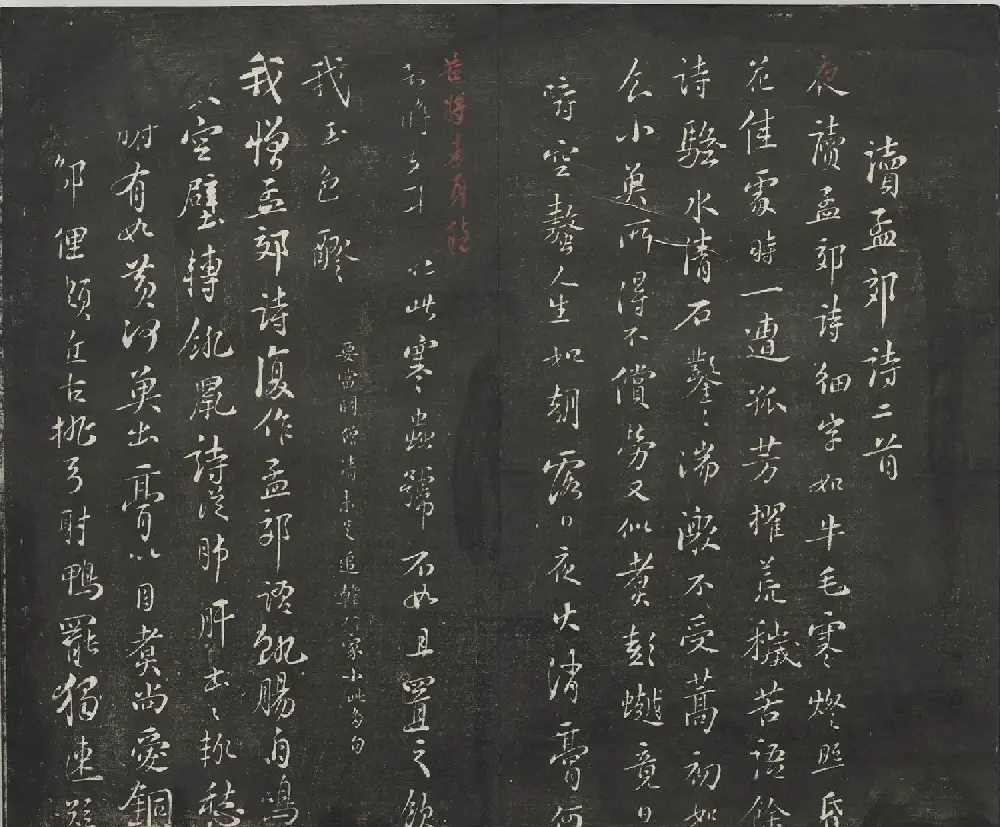 讀孟郊詩二首
夜讀孟郊詩細字如牛毛寒燈照昏
花佳處時一遭孤芳擢荒穢苦語餘
詩騷水清石鑿〻湍激不受蒿初如
食小魚所得不償勞又似煮彭竟日
嚼空螯人生如朝露日夜火消膏何
苦將兩耳聽
苦將兩耳聽此寒蟲號不如且置之飲
我玉色醪
要當鬬僧清未足追韓豪
我憎孟郊詩復作孟郊語飢腸自鳴
空壁轉飢鼠詩從肺肝出〻輒愁
有如黃河魚出膏以自煮尚愛銅
鄙俚頗近古桃弓射鴨罷獨速短